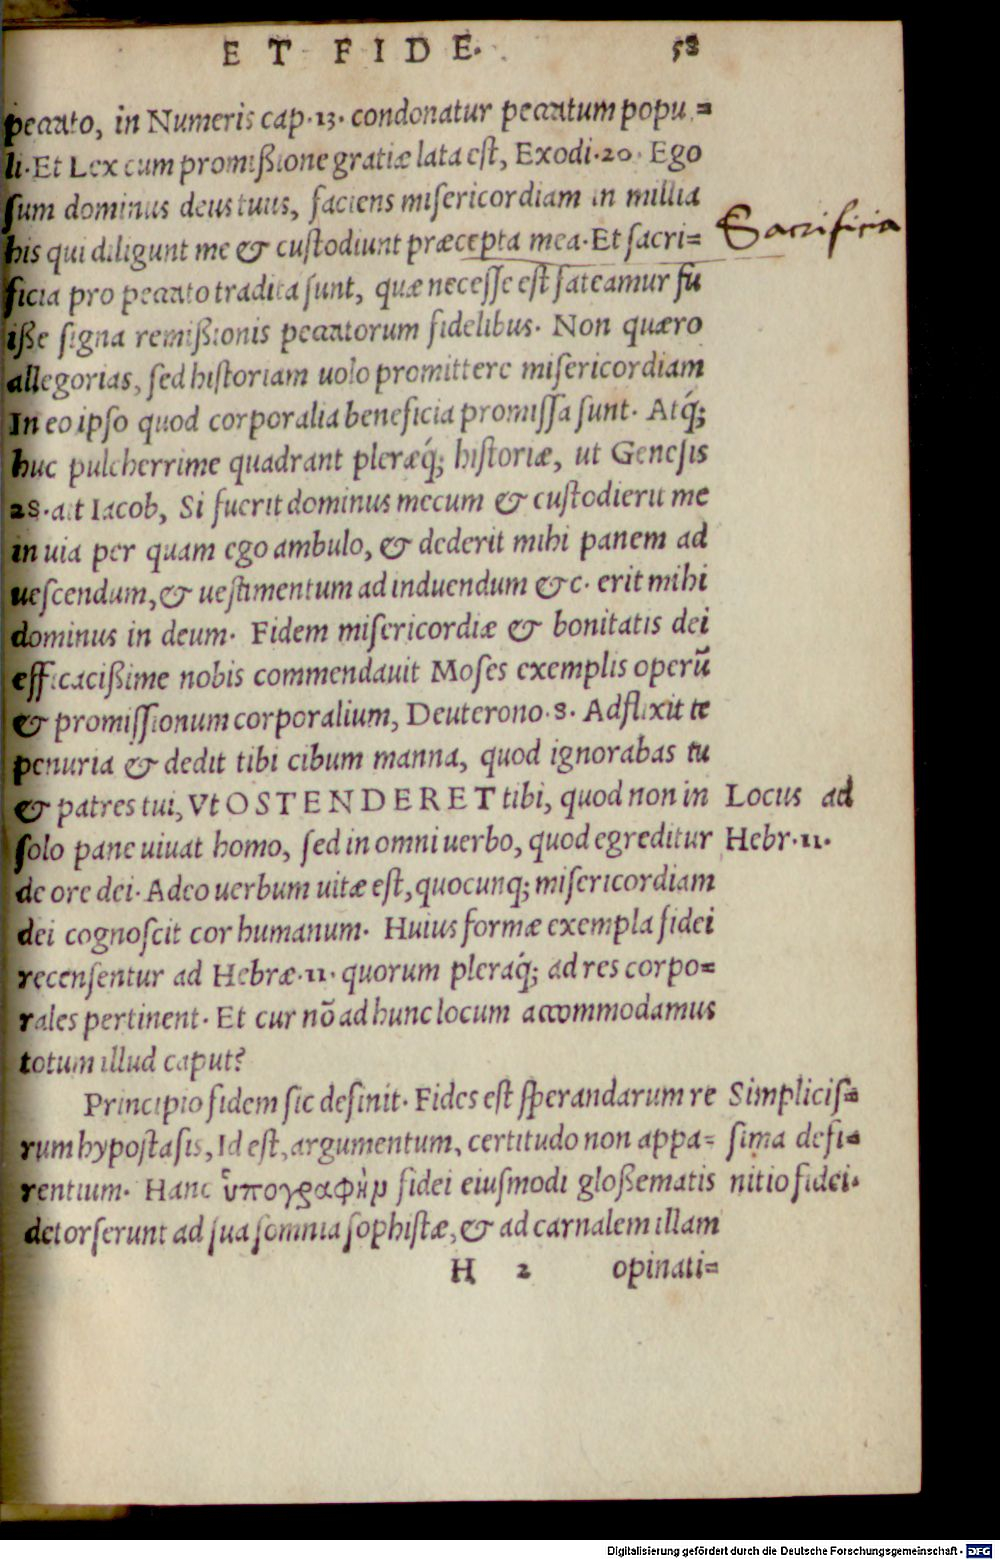 ET FIDE. 58
peccato, in Numeris cap. 13. condonatur peccatum popu=
li. Et Lex cum promißione gratiæ lata est, Exodi. 20. Ego
sum dominus deus tuus, faciens misericordiam in millia
his qui diligunt me & custodiunt præcepta mea. Et sacri= Sacrificia
ficia pro peccato tradita sunt, quæ necesse est fateamur fu
iße signa remißionis peccatorum fidelibus. Non quæro
allegorias, sed historiam uolo promittere misericordiam
In eo ipso quod corporalia beneficia promissa sunt. Atq́;
huc pulcherrime quadrant pleræq́; historiæ, ut Genesis
28. ait Iacob, Si fuerit dominus mecum & custodierit me
in uia per quam ego ambulo, & dederit mihi panem ad
uescendum, & uestimentum ad induendum &c. erit mihi
dominus in deum. Fidem misericordiæ & bonitatis dei
efficacißime nobis commendauit Moses exemplis operū
& promissionum corporalium, Deuterono. 8. Adflixit te
penuria & dedit tibi cibum manna, quod ignorabas tu
& patres tui, Vt OSTENDERET tibi, quod non in Locus ad
solo pane uiuat homo, sed in omni uerbo, quod egreditur Hebr. 11.
de ore dei. Adeo uerbum uitæ est, quocunq; misericordiam
dei cognoscit cor humanum. Huius formæ exempla fidei
recensentur ad Hebræ. 11. quorum pleraq́; ad res corpo=
rales pertinent. Et cur nō ad hunc locum accommodamus
totum illud caput?
Principio fidem sic definit. Fides est sperandarum re Simplicis=
rum hypostasis, Id est, argumentum, certitudo non appa= sima defi=
rentium. Hanc ὑπογραφὴν fidei eiusmodi gloßematis nitio fidei.
detorserunt ad sua somnia sophistæ, & ad carnalem illam
H 2 opinati=
Digitalisierung gefördert durch die Deutsche Forschungsgemeinschaft - DFG